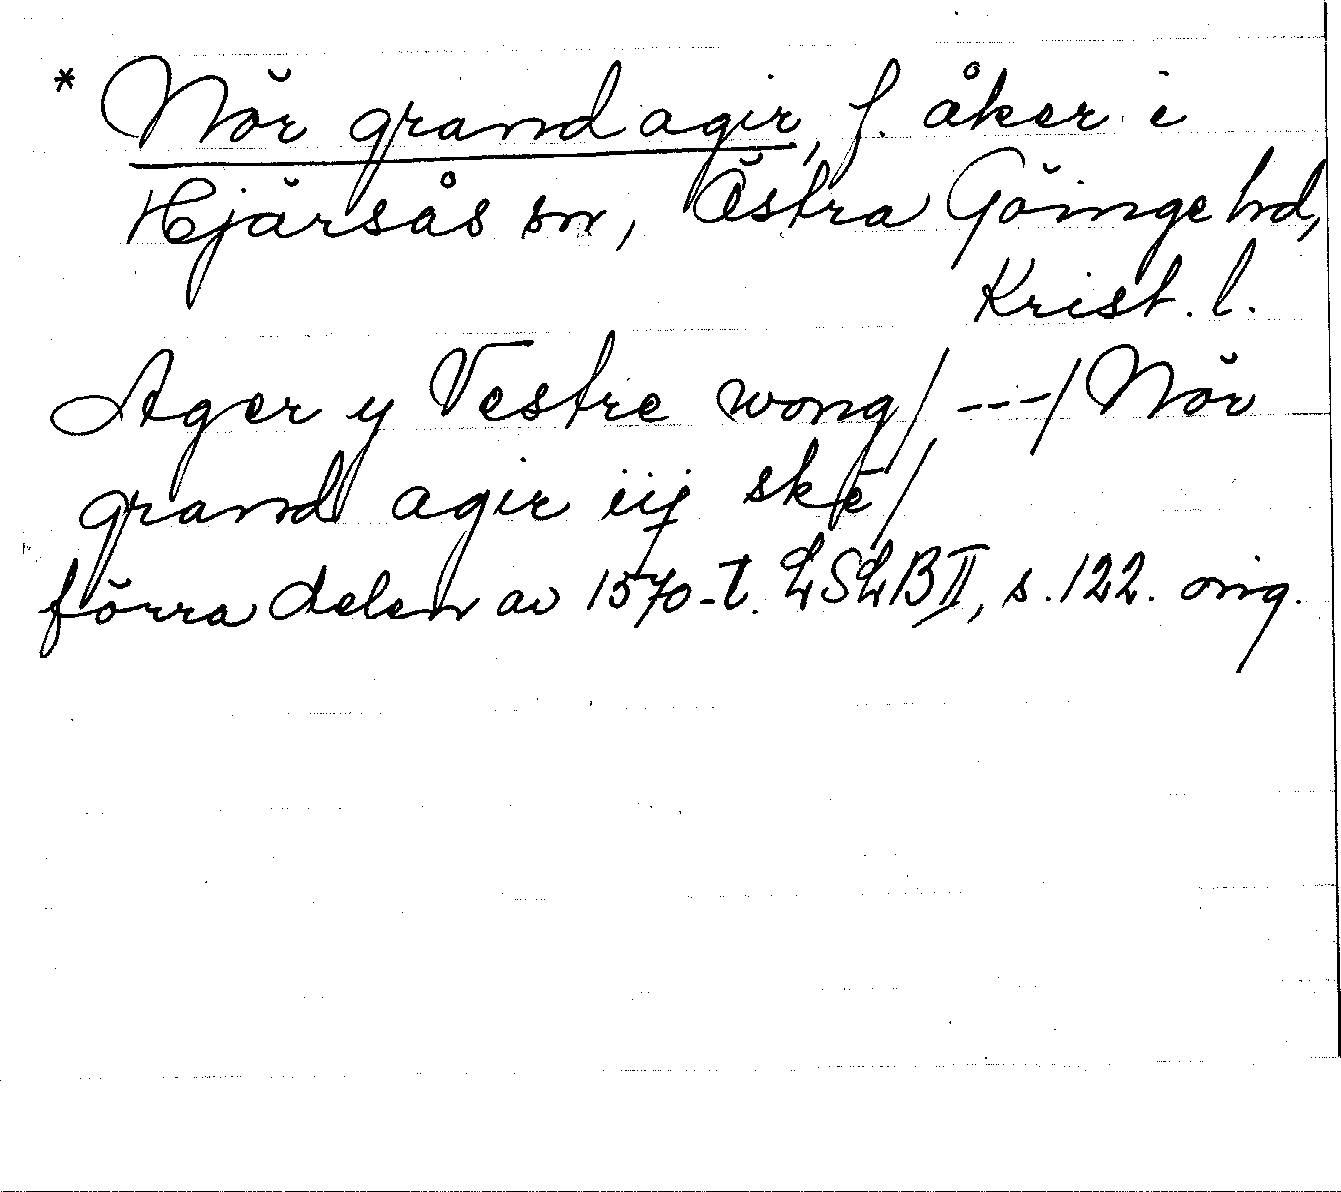 * Nör grand agir, f. åker i
Hjärsås sn, Östra Göinge hd,
Krist. l.
Ager y Vestre wong / --- / Nör
grand agir iij skē /
förra delen av 1570-t. LSLB II, s. 122. orig.